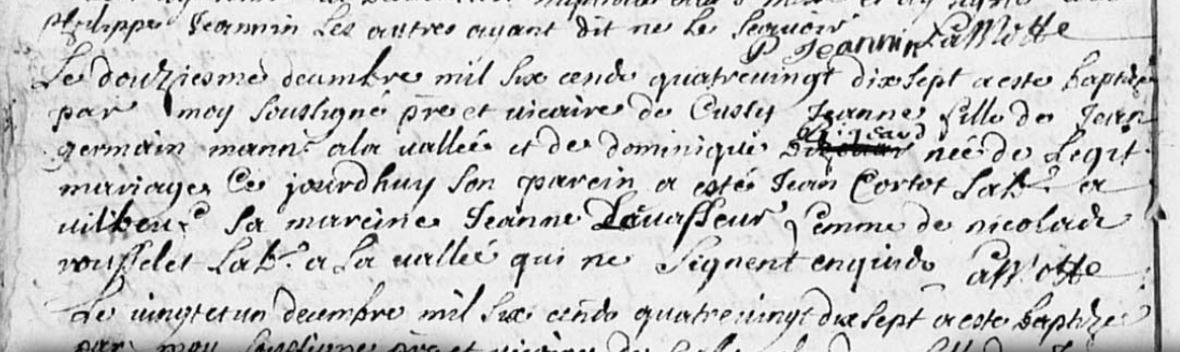 philippe Jeannin les autres ayant dit ne le scavoir
P Jeannin LaMotte
Le douziesme decembre mil six cends quatrevingt dixsept a este baptizé
par moy soussigné pre et vicaire de Cussy Jeanne fille de Jean
germain mannr a la vallée et de dominique née de legit
mariage ce jourdhuy son parein a esté Jean Cortot labr a
sa mareine Jeanne Levasseur femme de nicolas
rousselet labr a la vallée qui ne signent enquis LaMotte
Le vingt et un decembre mil six cends quatrevingt dixsept a este baptizé
par moy soussigné pre et vicaire de